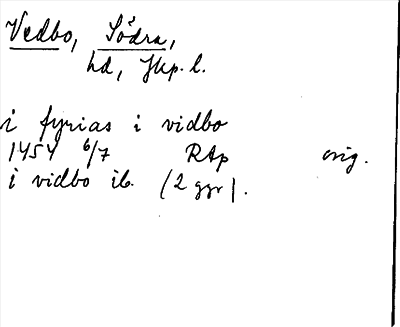 Vedbo, Södra,
hd, Jkp. l.
i fyrias i vidbo
1454 6/7 RAp orig.
i vidbo ib. (2 ggr).